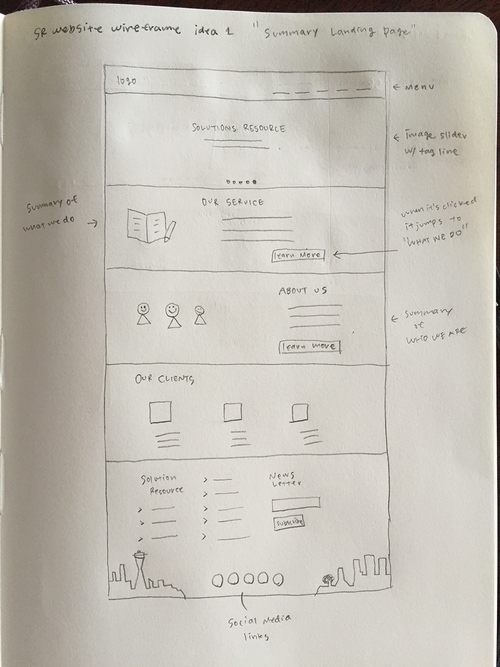 SR website wireframe idea 1 "Summary Landing page"
logo
← Menu
SOLUTIONS RESOURCE
← Image slider
w/ tag line
OUR SERVICE
Summary of
what we do →
learn more
when it's clicked
it jumps to
"WHAT WE DO"
ABOUT US
learn more
← Summary
of
WHO WE ARE
OUR CLIENTS
Solution
Resource
News
Letter
subscribe
Social Media
links